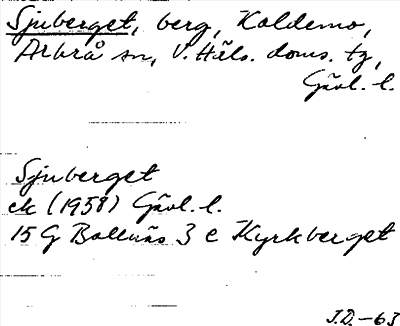 Sjuberget, berg, Koldemo,
Arbrå sn, V. Häls. doms. tg,
Gävl. l.
Sjuberget
ek (1958) Gävl. l.
15 G Bollnäs 3 c Kyrkberget
J.D.-63